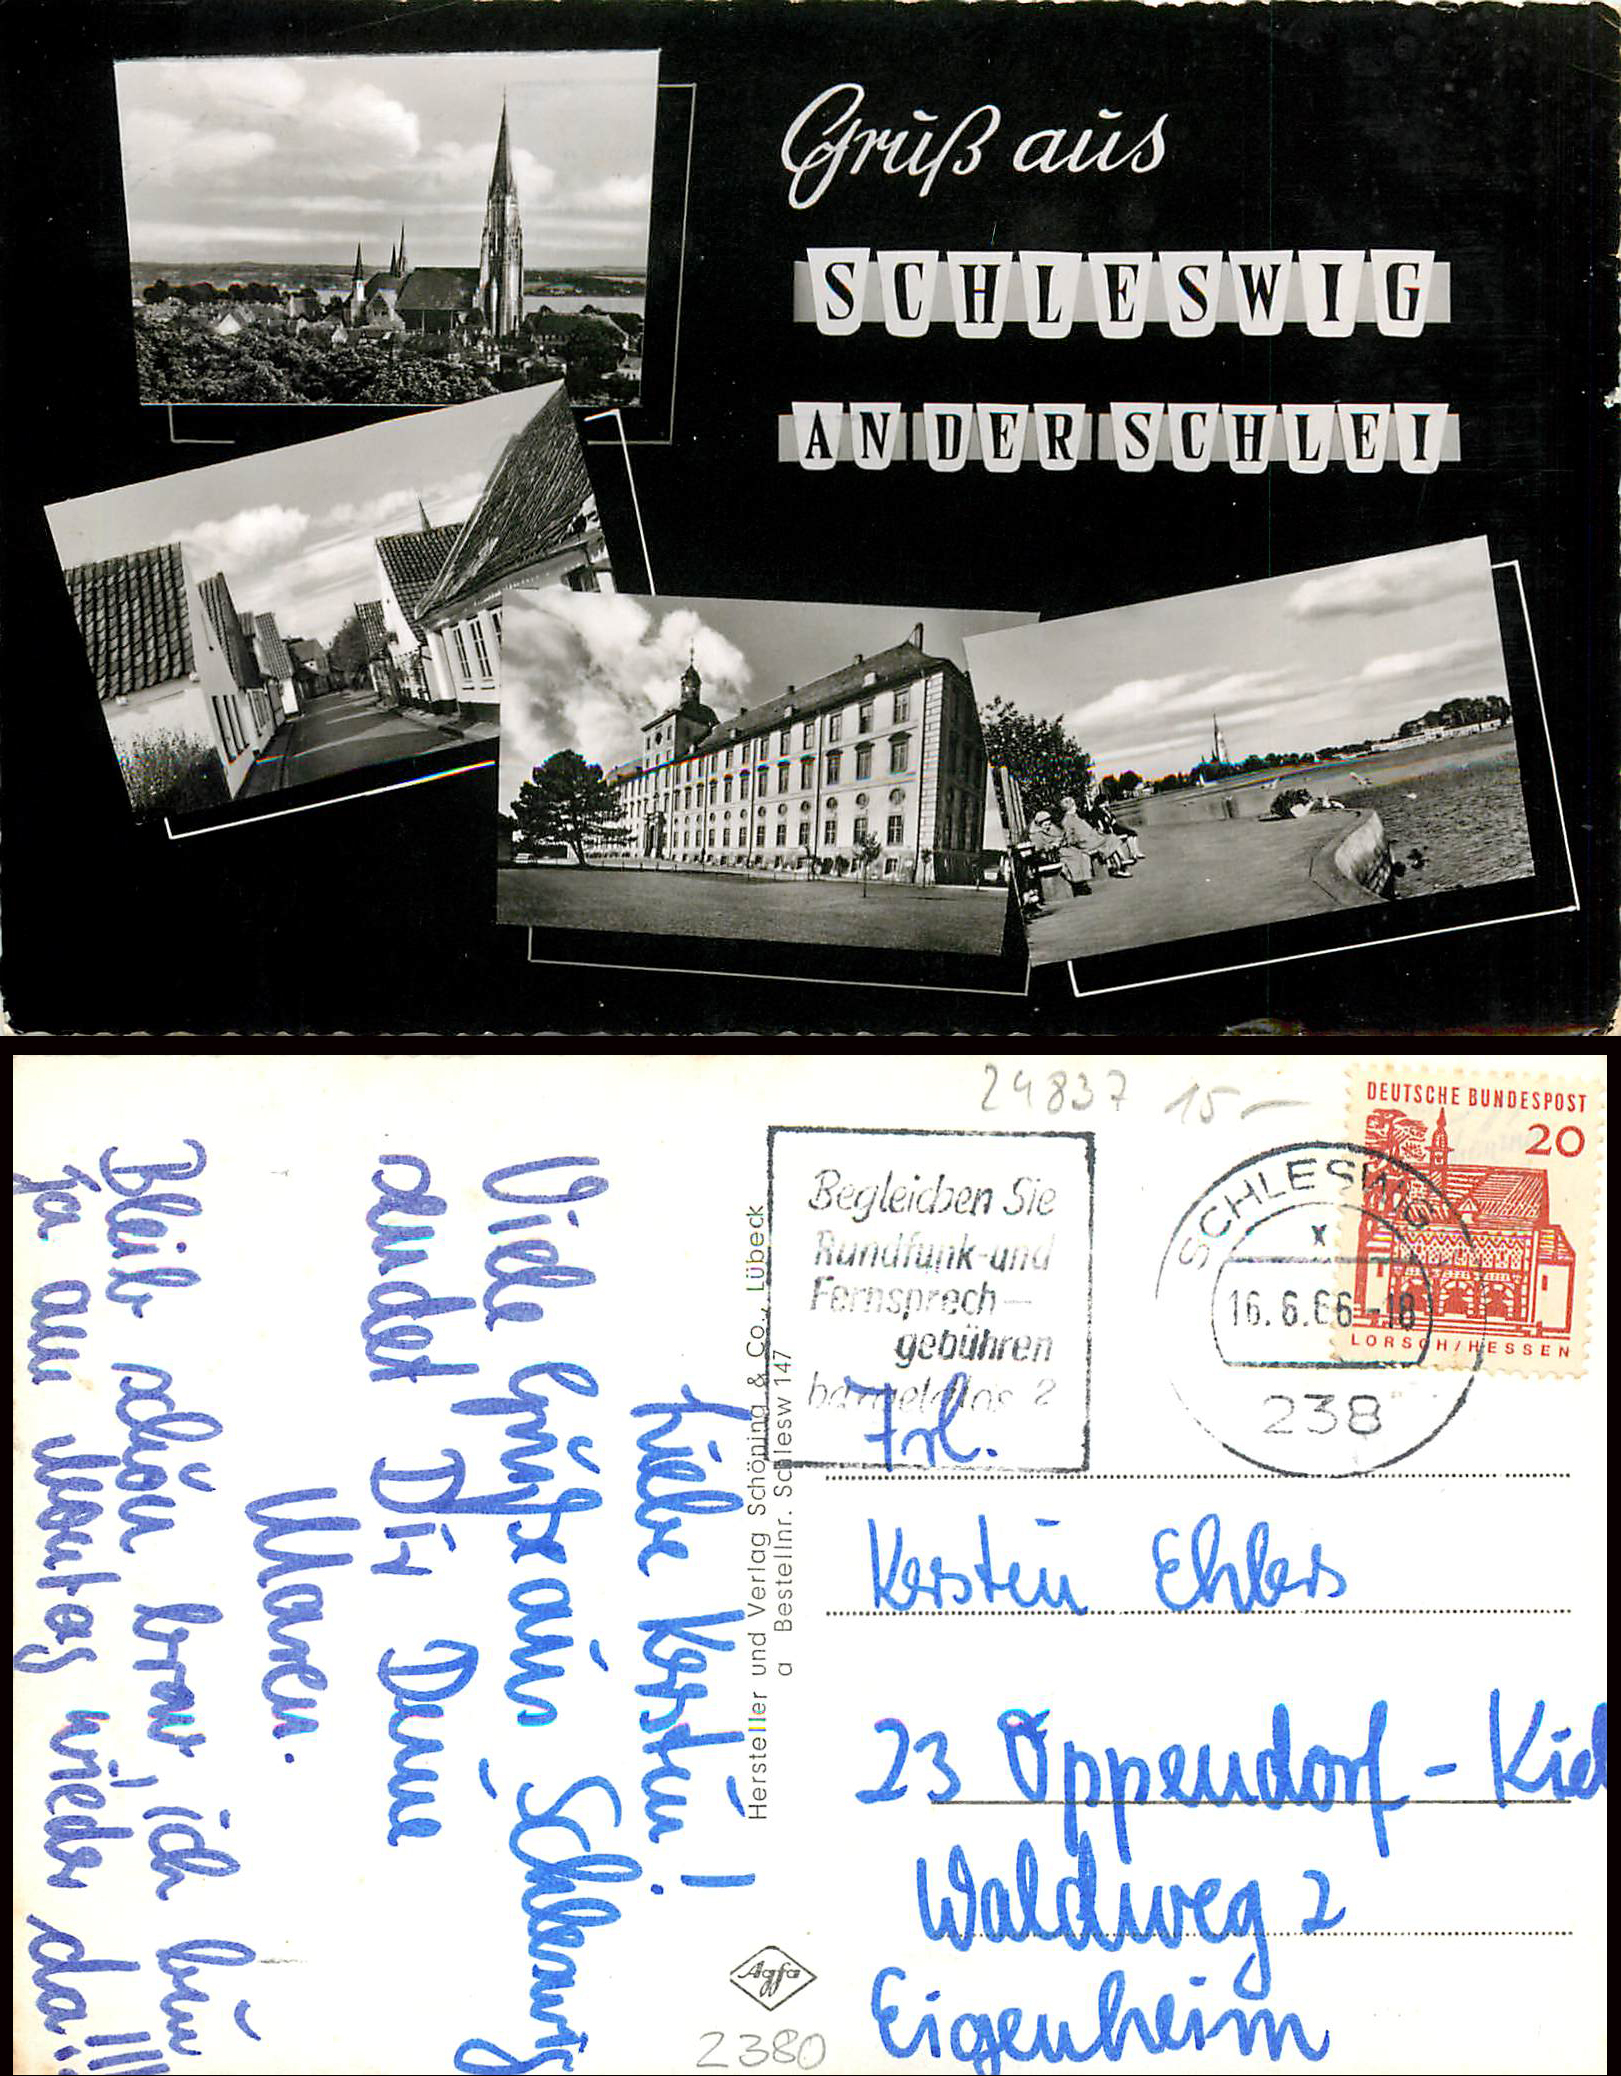 Gruß aus
SCHLESWIG
AN DER SCHLEI
24837 15-
Begleichen Sie
Rundfunk-und
Fernsprech-
gebühren
bargeldlos ?
SCHLESWIG
x
16.6.66-18
238
DEUTSCHE BUNDESPOST
20
LORSCH/HESSEN
Liebe Kerstin!
Viele Grüße aus Schleswig
sendet Dir Deine
Maren.
Bleib schön brav, ich bin
ja am Montag wieder da!!!
Hersteller und Verlag Schöning & Co., Lübeck
a Bestellnr. Schlesw 147
Frl.
Kerstin Ehlers
23 Oppendorf - Kiel
Waldweg 2
Eigenheim
Agfa
2380